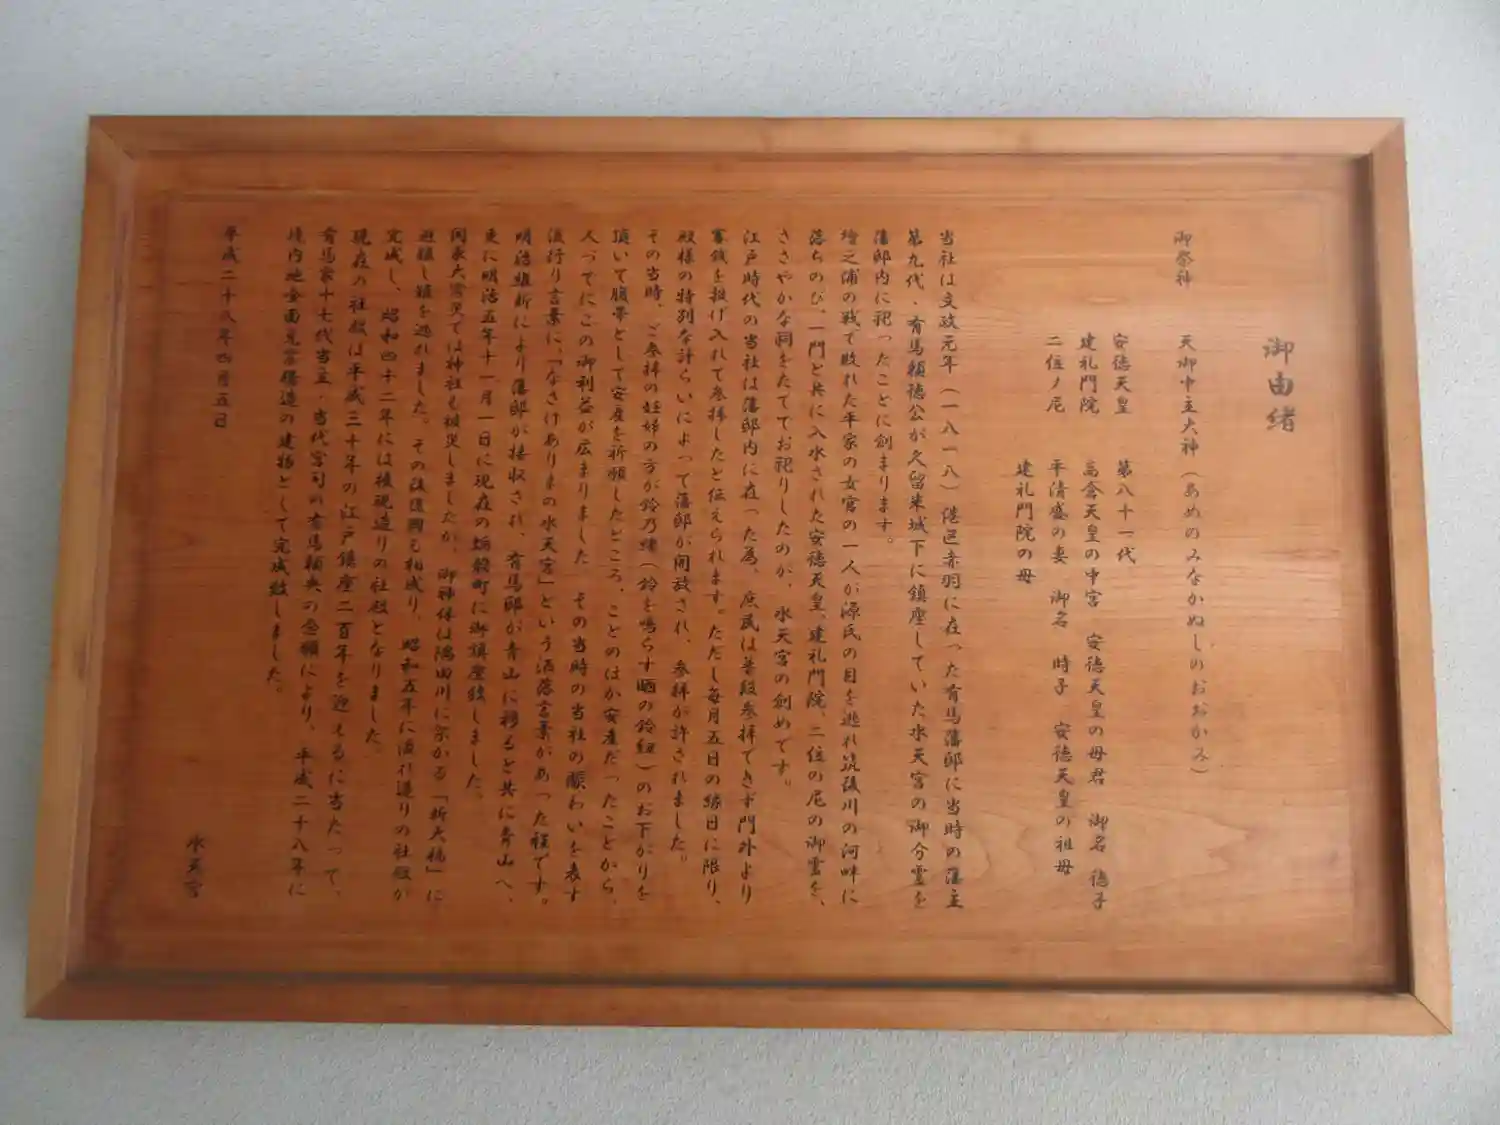 御由緒
御祭神　天御中主大神（あめのみなかぬしのおおかみ）
安徳天皇　第八十一代
建礼門院　高倉天皇の中宮　安徳天皇の母君　御名　徳子
二位ノ尼　平清盛の妻　御名　時子　安徳天皇の祖母
建礼門院の母
当社は文政元年（一八一八）港区赤羽に在った有馬藩邸に当時の藩主
第九代・有馬頼徳公が久留米城下に鎮座していた水天宮の御分霊を
藩邸内に祀ったことに創まります。
壇之浦の戦で敗れた平家の女官の一人が源氏の目を逃れ筑後川の河畔に
落ちのび、一門と共に入水された安徳天皇、建礼門院、二位の尼の御霊を、
ささやかな祠をたててお祀りしたのが、水天宮の創めです。
江戸時代の当社は藩邸内に在った為、庶民は普段参拝できず門外より
賽銭を投げ入れて参拝したと伝えられます。ただし毎月五日の縁日に限り、
殿様の特別な計らいによって藩邸が開放され、参拝が許されました。
その当時、ご参拝の妊婦の方が鈴乃緒（鈴を鳴らす晒の鈴紐）のお下がりを
頂いて腹帯として安産を祈願したところ、ことのほか安産だったことから、
人づてにこの御利益が広まりました　その当時の当社の賑わいを表す
流行り言葉に、「なさけありまの水天宮」という洒落言葉があった程です。
明治維新により藩邸が接収され、有馬邸が青山に移ると共に青山へ、
更に明治五年十一月一日に現在の蛎殻町に御鎮座致しました。
関東大震災では神社も被災しましたが、御神体は隅田川に架かる「新大橋」に
避難し難を逃れました。その後復興も相成り、昭和五年に流れ造りの社殿が
完成し、昭和四十二年には権現造りの社殿となりました。
現在の社殿は平成三十年の江戸鎮座二百年を迎えるに当たって、
有馬家十七代当主・当代宮司の有馬頼央の念願により、平成二十八年に
境内地全面免震構造の建物として完成致しました。
平成二十八年四月五日
水天宮